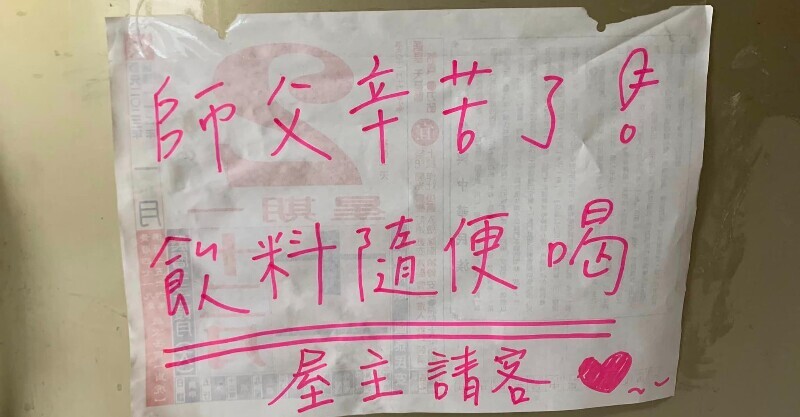 師父辛苦了!
飲料隨便喝
屋主請客